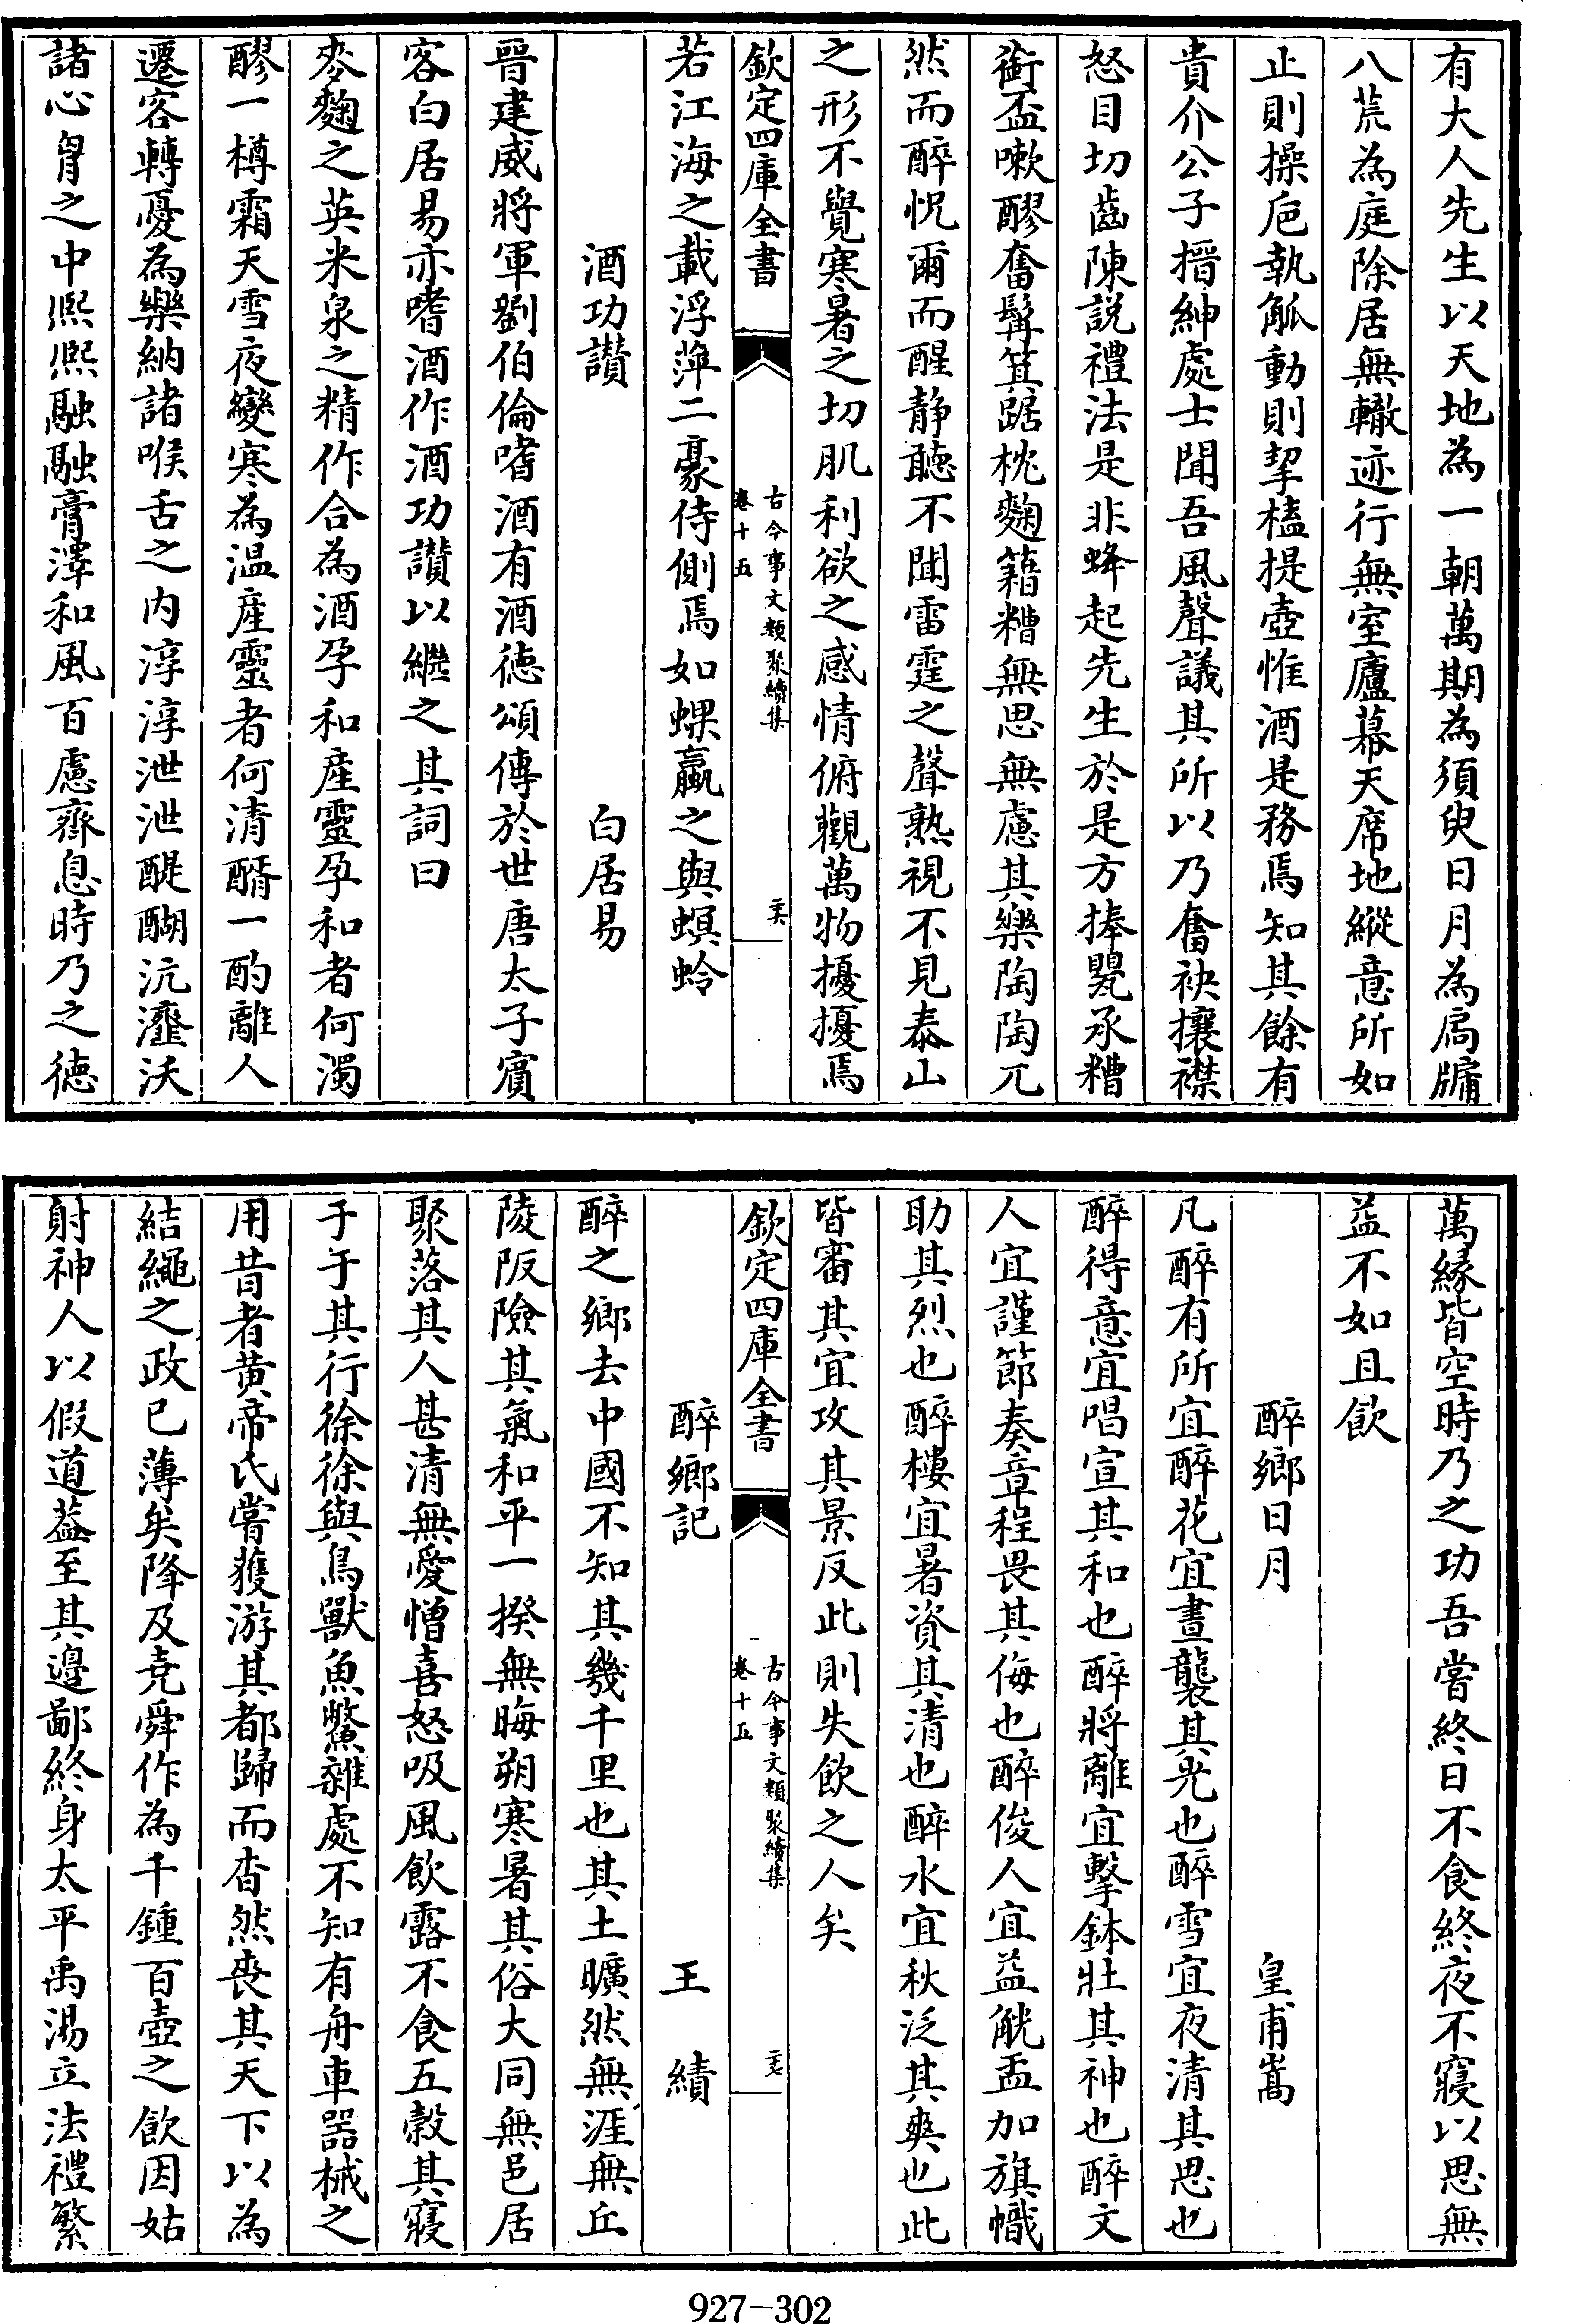 有大人先生以天地為一朝萬期為須臾日月為扃牖
八荒為庭除居無轍迹行無室廬幕天席地縱意所如
止則操巵執觚動則挈榼提壺惟酒是務焉知其餘有
貴介公子搢紳處士聞吾風聲議其所以乃奮袂攘襟
怒目切齒陳說禮法是非蜂起先生於是方捧甖承糟
銜盃嗽醪奮髯箕踞枕麴籍糟無思無慮其樂陶陶兀
然而醉怳爾而醒静聽不聞雷霆之聲熟視不見泰山
之形不覺寒暑之切肌利欲之感情俯觀萬物擾擾焉
欽定四庫全書
古今事文類聚續集
卷十五
二十六
若江海之載浮萍二豪侍側焉如蜾蠃之與螟蛉
酒功讃　白居易
晉建威將軍劉伯倫嗜酒有酒德頌傳於世唐太子賓
客白居易亦嗜酒作酒功讃以繼之其詞曰
麥麴之英米泉之精作合為酒孕和産靈孕和者何濁
醪一樽霜天雪夜變寒為温産靈者何清醑一酌離人
遷客轉憂為樂納諸喉舌之内淳淳泄泄醍醐沆瀣沃
諸心胷之中熙熙融融膏澤和風百慮齊息時乃之德
萬緣皆空時乃之功吾嘗終日不食終夜不寢以思無
益不如且飲
醉鄉日月　皇甫嵩
凡醉有所宜醉花宜晝襲其光也醉雪宜夜清其思也
醉得意宜唱宣其和也醉將離宜擊鉢壯其神也醉文
人宜謹節奏章程畏其侮也醉俊人宜益觥盂加旗幟
助其烈也醉樓宜暑資其清也醉水宜秋泛其爽也此
皆審其宜攻其景反此則失飲之人矣
欽定四庫全書
古今事文類聚續集
卷十五
二十七
醉鄉記　王績
醉之鄉去中國不知其幾千里也其土曠然無涯無丘
陵阪險其氣和平一揆無晦朔寒暑其俗大同無邑居
聚落其人甚清無愛憎喜怒吸風飲露不食五穀其寢
于于其行徐徐與鳥獸魚鱉雜處不知有舟車器械之
用昔者黄帝氏嘗獲游其都歸而杳然喪其天下以為
結繩之政已薄矣降及堯舜作為千鍾百壺之飲因姑
射神人以假道葢至其邉鄙終身太平禹湯立法禮繁
927-302